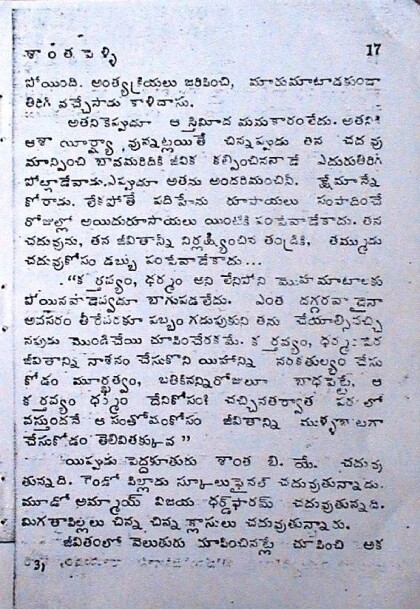 శాంత పెళ్ళి 17
పోయింది. అంత్యక్రియలు జరిపించి, మారుమాటాడకుండా
తిరిగి వచ్చేసాడు కాళిదాసు.
అతనికెప్పుడూ ఆ స్తిమీద మమకారంలేదు. అతనికి
ఆశా యీర్ష్యా వున్నట్లయితే చిన్నప్పుడు తన చదువు
మాన్పించి బావమరిదికి జీవిక కల్పించిననాడే ఎదురుతిరిగి
పోల్లాడేవాడు. ఎప్పుడూ అతను అందరిమంచినీ. క్షేమాన్నే
కోరాడు. లేకపోతే పదిహేను రూపాయలు సంపాదించే
రోజుల్లో అయిదురూపాయలు యింటికి పంపేవాడేకాదు. తన
చదువును, తన జీవితాన్నీ నిర్లక్ష్యించిన తండ్రికి, తమ్ముడు
చదువుకోసం డబ్బు పంపేవాడేకాదు...
"కర్తవ్యం, ధర్మం అని లేనిపోని మొహమాటాలకు
పోయినవాడెప్పుడూ బాగుపడలేదు. ఎంత దగ్గరవాడైనా
అవసరం తీరేవరకూ పబ్బం గడుపుకుని తను చేయాల్సివచ్చి
నపుడు మొండిచేయి చూపించేరకమే. కర్తవ్యం, ధర్మం
జీవితాన్ని నాశనం చేసుకొని యిహాన్ని నరకతుల్యం చేసు
కోడం మూర్ఖత్వం, బతికినన్నిరోజులూ బాధపెట్టే, ఆ
కర్తవ్యం ధర్మం దేనికోసం? చచ్చినతర్వాత పరలో
వస్తుందనే ఆ సంతోషంకోసం జీవితాన్ని ముళ్ళబాటగా
చేసుకోడం తెలివితక్కువ"
యిప్పుడు పెద్దకూతురు శాంత బి. యే. చదువు
తున్నది. రెండో పిల్లాడు స్కూలుఫైనల్ చదువుతున్నాడు.
మూడో అమ్మాయ్ విజయ థర్డ్‌ఫారమ్ చదువుతున్నది.
మిగతాపిల్లలు చిన్న చిన్న క్లాసులు చదువుతున్నారు.
జీవితంలో వెలుతురు చూపించినట్లే చూపించి అక
3)